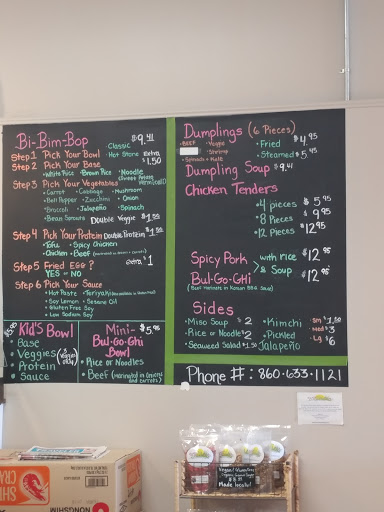 Bi-Bim-Bop $9.41
Step 1 Pick Your Bowl • Classic • Hot Stone Extra $1.50
Step 2 Pick Your Base
• White Rice • Brown Rice • Noodle
Step 3 Pick Your Vegetables
• Carrot • Cabbage • Mushroom
• Bell Pepper • Zucchini • Onion
• Broccoli • Jalapeño • Spinach
• Bean Sprouts Double Veggie $1.50
Step 4 Pick Your Protein Double Protein $1.50
• Tofu • Spicy Chicken
• Chicken • Beef
Step 5 Fried Egg? extra $1
YES or NO
Step 6 Pick Your Sauce
• Hot Paste • Teriyaki
• Soy Lemon • Sesame Oil
• Gluten Free Soy
• Low Sodium Soy
$5.95 Kid's Bowl
• Base
• Veggies
• Protein
• Sauce
Mini- $5.95
Bul-Go-Ghi
Bowl
• Rice or Noodles
• Beef (marinated in onions
and carrots)
Dumplings (6 Pieces)
• Beef • Veggie • Fried $4.95
• Shrimp • Steamed $5.45
• Spinach + Kale
Dumpling Soup $9.41
Chicken Tenders
• 4 pieces $5.95
• 8 Pieces $9.95
• 12 Pieces $12.95
Spicy Pork with rice $12.95
& Soup
Bul-Go-Ghi $12.95
(Beef Marinate in Korean BBQ Sauce)
Sides
• Miso Soup $2
• Rice or Noodle $2
• Seaweed Salad $1.50
• Kimchi
• Pickled
Jalapeño
• sm $1.50
• med $3
• Lg $6
Phone #: 860-633-1121
Made locally!
NONGSHIM